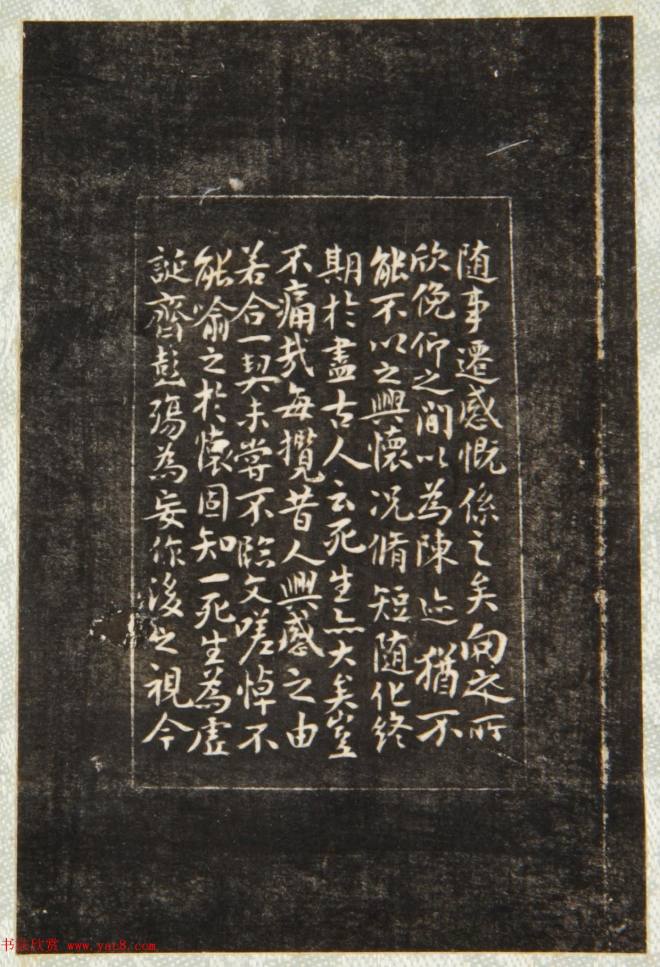 随事遷感慨係之矣向之所
欣俛仰之間以為陳迹猶不
能不以之興懷况脩短随化終
期於盡古人云死生亦大矣豈
不痛哉每攬昔人興感之由
若合一契未嘗不臨文嗟悼不
能喻之於懷固知一死生為虛
誕齊彭殤為妄作後之視今
书法欣赏 www.yac8.com